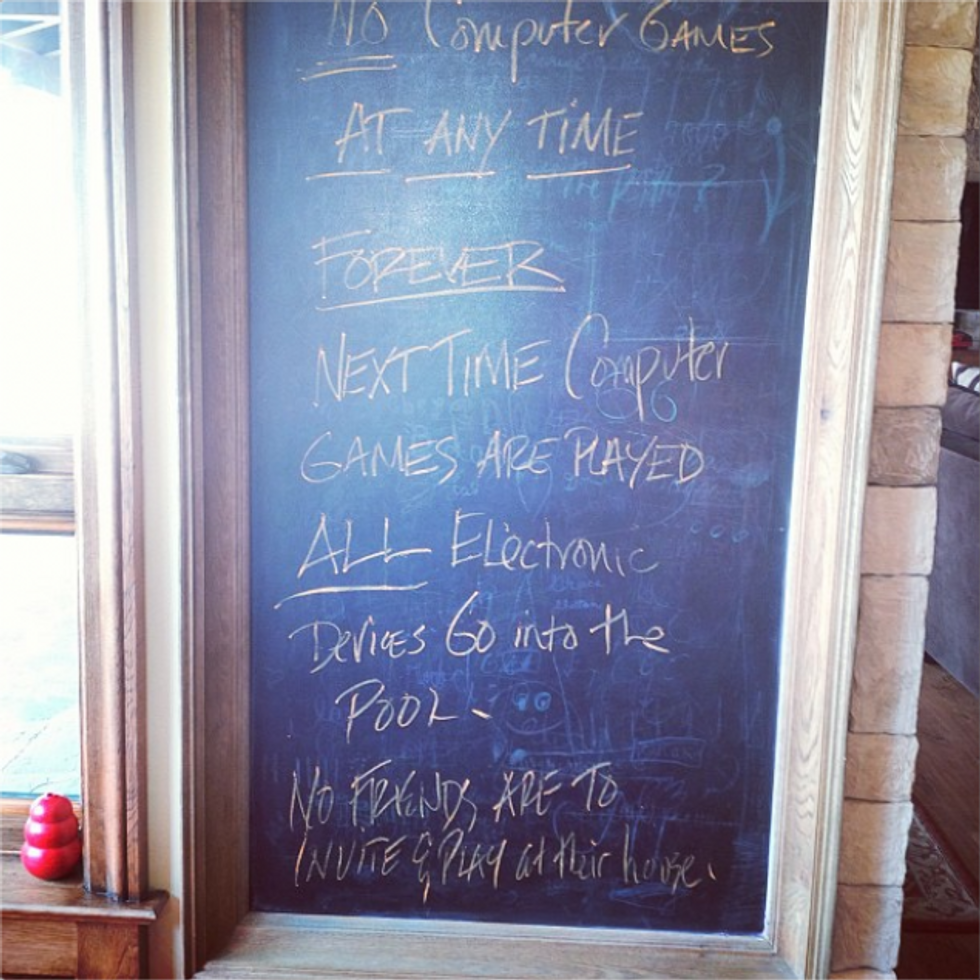 NO Computer GAMES
AT ANY TiME
FOREVER
NEXT TIME Computer
GAMES ARE PLAYED
ALL ELectronic
Devices Go into the
POOL.
NO FRIENDS ARE TO
INVITE & PLAY at their house.